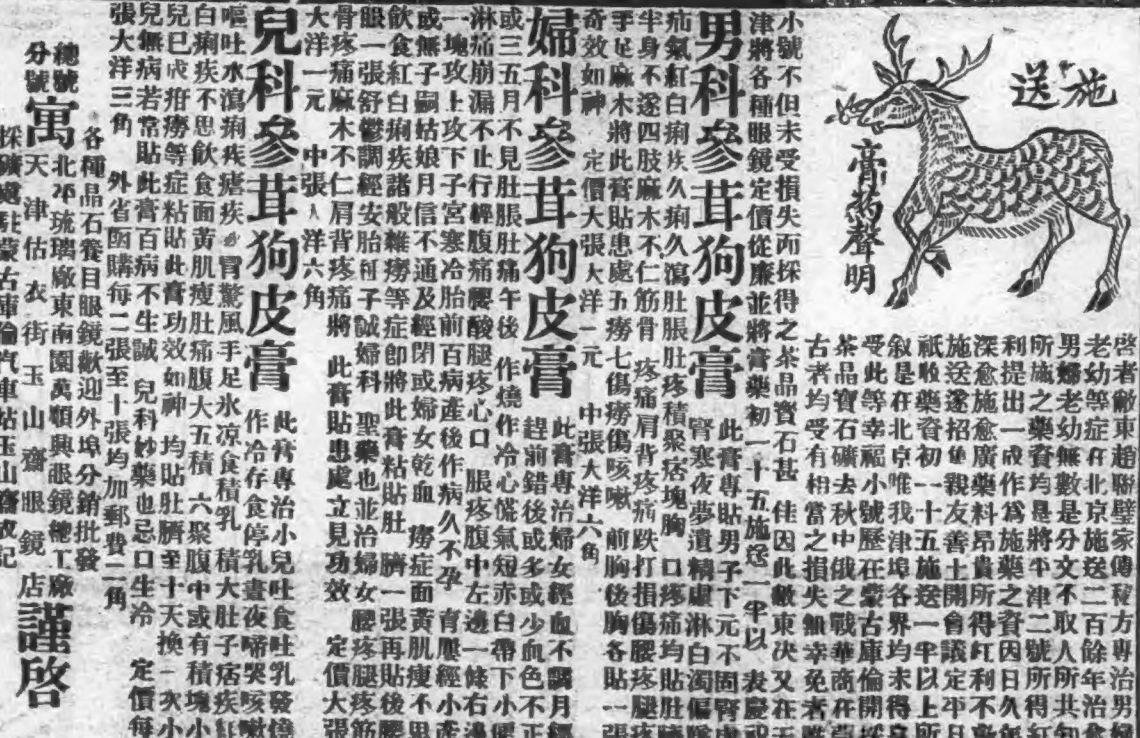 施送
膏药聲明
啓者敝東趙聯璧家傳秘方專治男婦
老幼等症在北京施送二百餘年治愈
男婦老幼無數是分文不取人所共知
所施之藥資均是將平津二號所得紅
利提出一成作爲施藥之資因日久年
深愈施愈廣藥料昂貴所得紅利不敷
施送遂招集親友善士開會議定平日
祇收藥資初一十五施送一半以上所
叙是在北京唯我津埠各界均未得
受此等幸福小號歷在蒙古庫倫開採
茶晶寶石礦去秋中俄之戰華商在蒙
古者均受有相當之損失無幸免者
小號不但未受損失而採得之茶晶寶石甚佳因此敝東决又在天
津將各種眼鏡定價從廉並將膏藥初一十五施送一半以表慶祝
男科參茸狗皮膏
此膏專貼男子下元不固腎虛
疝氣紅白痢疾久痢久瀉肚脹肚疼積聚痞塊胸口疼痛均貼肚臍
半身不遂四肢麻木不仁筋骨疼痛肩背疼痛跌打損傷腰疼腿疼
手足麻木將此膏貼患處五癆七傷癆傷咳嗽前胸後胸各貼一張
奇效如神 定價大張大洋一元 中張大洋六角
婦科參茸狗皮膏
此膏專治婦女經血不調月經
趕前錯後或多或少血色不正
或三五月不見肚脹肚痛午後作燒作冷心慌氣短赤白帶下小便
淋痛崩漏不止行經腹痛腰酸腿疼心口脹疼腹中左邊一條右邊
一塊攻上攻下子宮寒冷胎前百病產後作病久不孕
或無子嗣姑娘月信不通及經閉或婦女乾血癆症面黃肌瘦不思
飲食紅白痢疾諸般雜癆等症即將此膏粘貼肚臍一張再貼後腰
眼一張舒鬱調經安胎種子誠婦科聖藥也並治婦女腰疼腿疼筋
骨疼痛麻木不仁肩背疼痛將此膏貼患處立見功效 定價大張
大洋一元 中張大洋六角
兒科參茸狗皮膏
此膏專治小兒吐食吐乳發燒
作冷存食停乳晝夜啼哭咳嗽
嘔吐水瀉痢疾瘧疾冒驚風手足氷凉食積乳積大肚子痞疾紅
白痢疾不思飲食面黃肌瘦肚痛腹大五積六聚腹中或有積塊小
兒已成疳癆等症粘貼此膏功效如神均貼肚臍至十天換一次小
兒無病若常貼此膏百病不生誠兒科妙藥也忌口生冷 定價每
張大洋三角 外省函購每二張至十張均加郵費二角
各種晶石養目眼鏡歡迎外埠分銷批發
總號
分號
寓
北平琉璃廠東南園萬順興眼鏡總工廠
天津估衣街玉山齋眼鏡店
採礦處駐蒙古庫倫汽車站玉山齋成記
謹啓